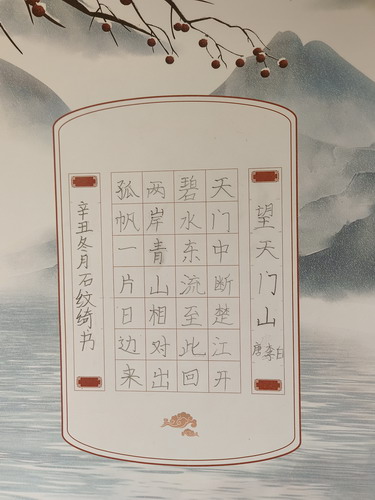 望天门山
唐 李白
天门中断楚江开
碧水东流至此回
两岸青山相对出
孤帆一片日边来
辛丑冬月石纹绮书